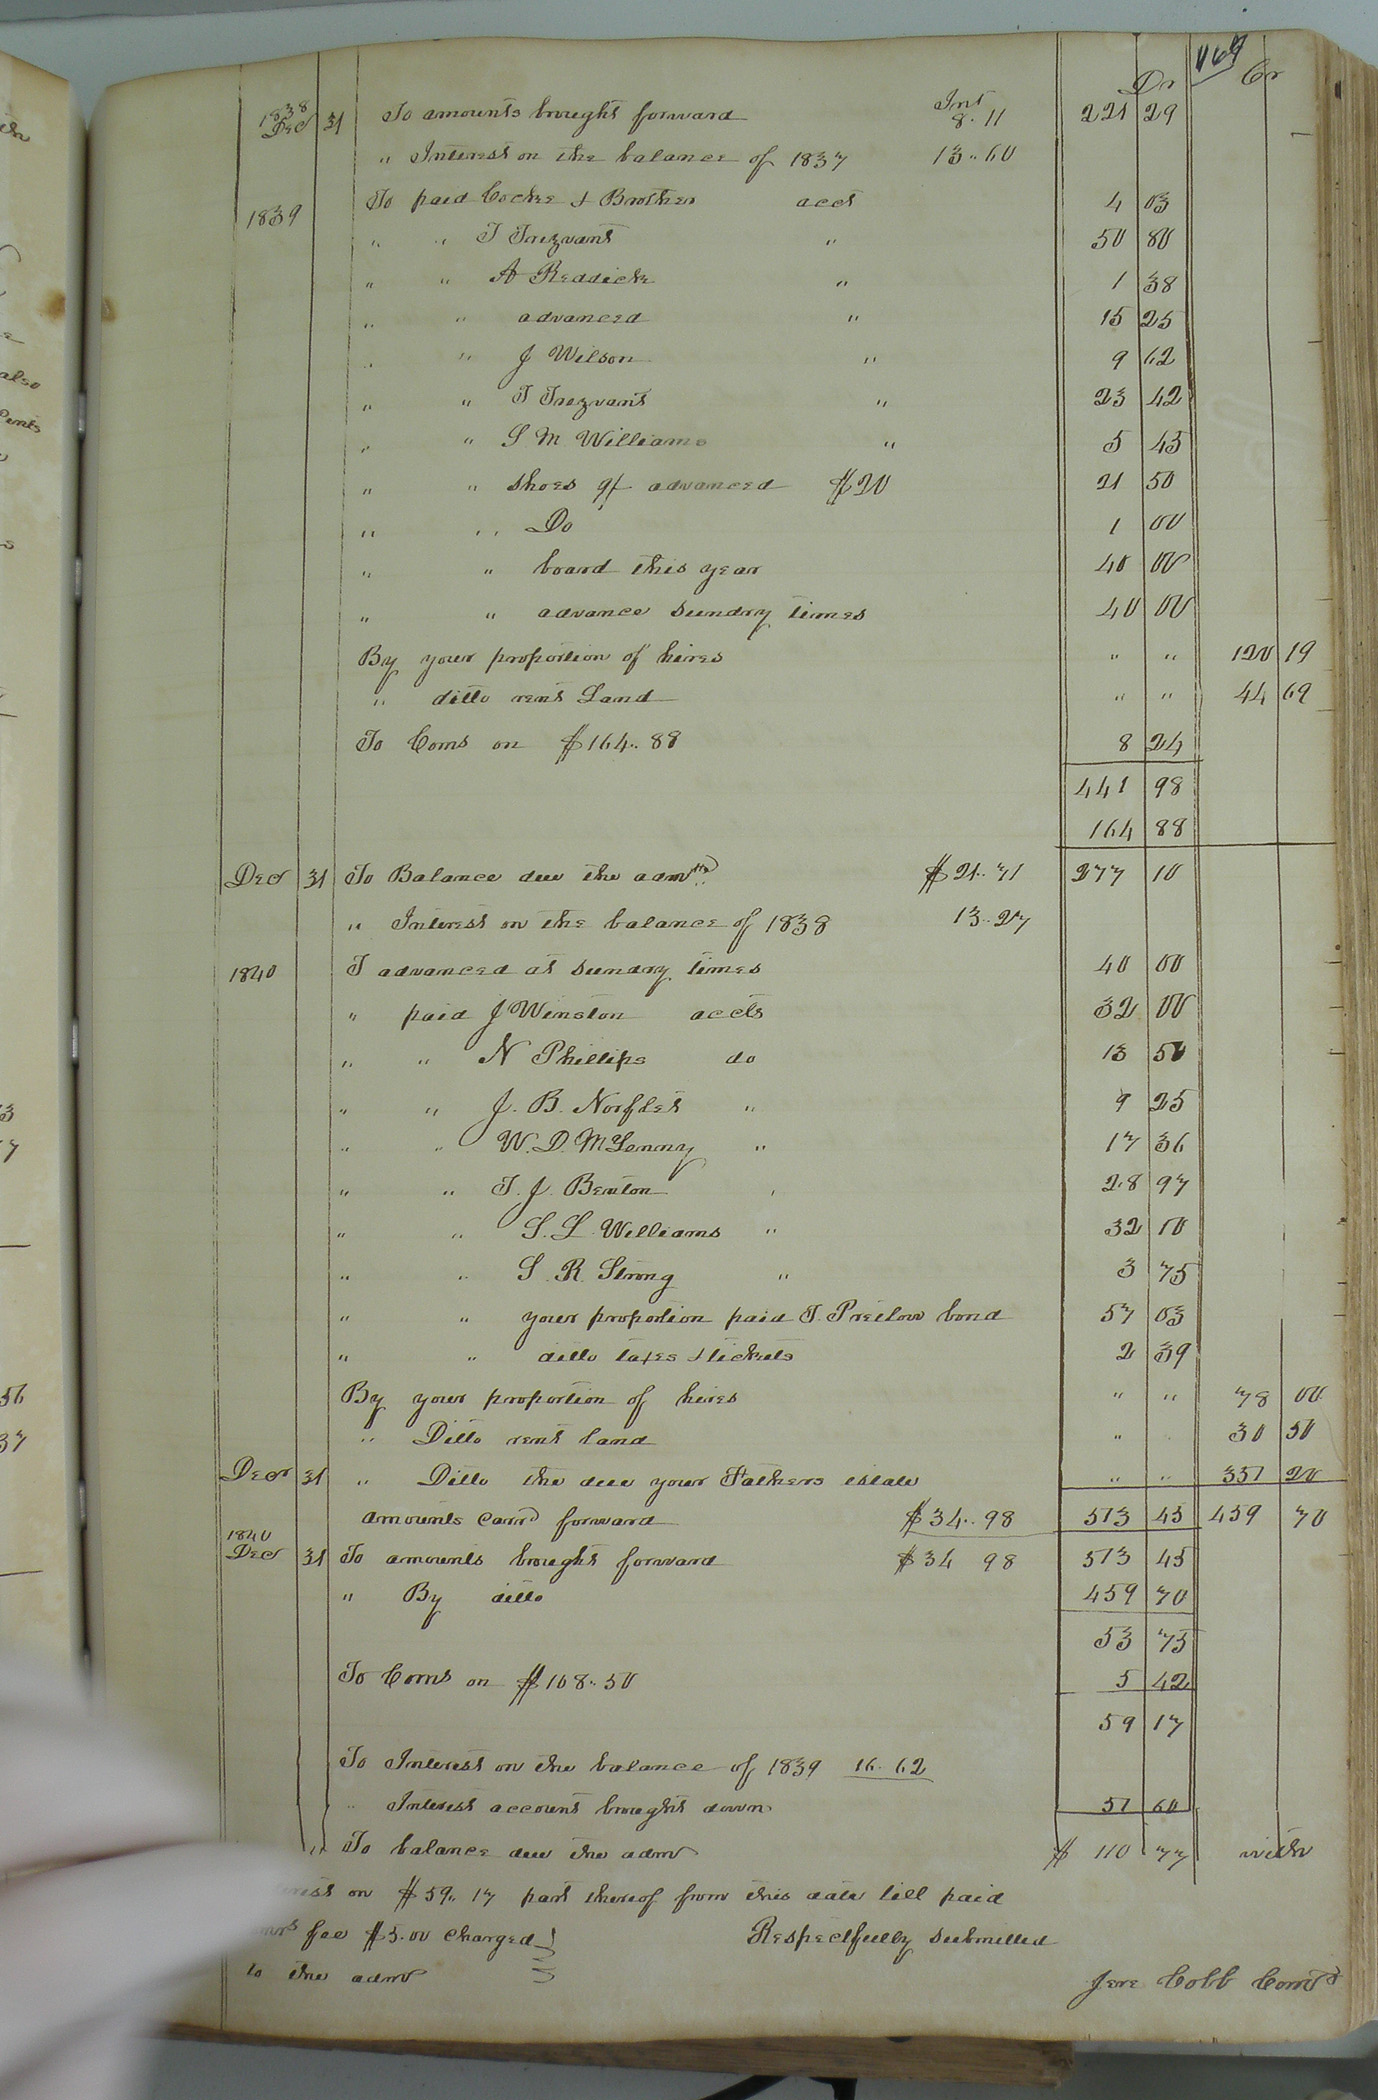 Dr 169 Cr
1838 Decr 31 To amounts brought forward Int 8.11 221 29
" Interest on the balance of 1837 13..60
1839 To paid Cocke & Brother acct 4 03
" " T Trezvant " 50 80
" " A Reddick " 1 38
" " advanced " 15 25
" " J Wilson " 9 62
" " T Trezvant " 23 42
" " S M Williams " 5 45
" " shoes 9/ advanced $20 21 50
" " Do 1 00
" " board this year 40 00
" " advance sundry times 40 00
By your proportion of hires " " 120 19
" ditto rent Land " " 44 69
To Coms on $164..88 8 24
441 98
164 88
Decr 31 To Balance due the admr $21..71 277 10
" Interest on the balance of 1838 13..27
1840 T advanced at sunday times 40 00
" paid J Winston accts 32 00
" " N Phillips do 13 50
" " J. B. Norflet " 9 25
" " W. D. McLenny " 17 36
" " T. J. Benton " 28 97
" " S. L. Williams " 32 10
" " S. R. Strong " 3 75
" " your proportion paid T. Pretlow bond 57 03
" " ditto taxes & tickets 2 39
By your proportion of hires " " 78 00
" Ditto rent land " " 30 50
Decr 31 " Ditto the due your Fathers estate " " 351 20
amounts Carrd forward $34..98 513 45 459 70
1840 Decr 31 To amounts brought forward $34 98 513 45
" By ditto 459 70
53 75
To Coms on $108..50 5 42
59 17
To Interest on the balance of 1839 16..62
" Interest account brought down 51 60
" To balance due the admr $ 110 77 with
on $59..17 part thereof from this date till paid
fee $5.00 charged Respectfully submitted
to the admr
Jere Cobb Comr